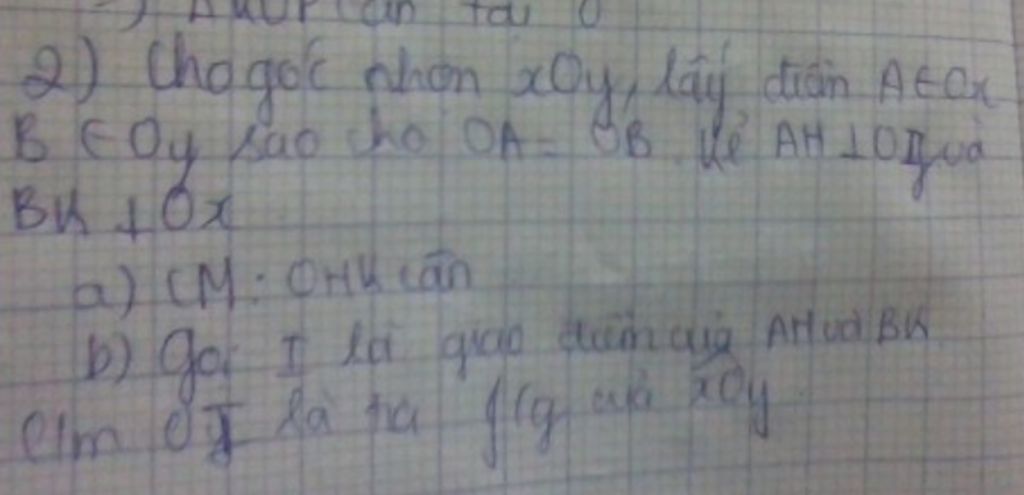 cân tại O
2) Cho góc nhọn xOy, lấy điểm A ∈ Ox
B ∈ Oy sao cho OA = OB. Kẻ AH ⊥ Oy và
BK ⊥ Ox
a) CM: OHK cân
b) Gọi I là giao điểm của AH và BK
C/m OI là tia f/g của xOy